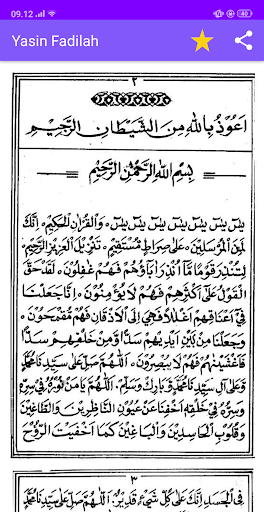 09.12
82
Yasin Fadilah
٢
اَعُوْذُ بِاللّٰهِ مِنَ الشَّيْطَانِ الرَّجِيْمِ
بِسْمِ اللّٰهِ الرَّحْمٰنِ الرَّحِيْمِ
يٰسۤ يٰسۤ يٰسۤ يٰسۤ يٰسۤ يٰسۤ يٰسۤ وَالْقُرْاٰنِ الْحَكِيْمِ اِنَّكَ
لَمِنَ الْمُرْسَلِيْنَ عَلٰى صِرَاطٍ مُسْتَقِيْمٍ تَنْزِيْلَ الْعَزِيْزِ الرَّحِيْمِ
لِتُنْذِرَ قَوْمًا مَّا اُنْذِرَ اٰبَاؤُهُمْ فَهُمْ غٰفِلُوْنَ لَقَدْ حَقَّ
الْقَوْلُ عَلٰى اَكْثَرِهِمْ فَهُمْ لَا يُؤْمِنُوْنَ اِنَّا جَعَلْنَا
فِيْ اَعْنَاقِهِمْ اَغْلَالًا فَهِيَ اِلَى الْاَذْقَانِ فَهُمْ مُقْمَحُوْنَ
وَجَعَلْنَا مِنْ بَيْنِ اَيْدِيْهِمْ سَدًّا وَمِنْ خَلْفِهِمْ سَدًّا
فَاَغْشَيْنٰهُمْ فَهُمْ لَا يُبْصِرُوْنَ اَللّٰهُمَّ صَلِّ عَلٰى سَيِّدِنَا مُحَمَّدٍ
وَعَلٰى اٰلِ سَيِّدِنَا مُحَمَّدٍ وَبَارِكْ وَسَلِّمْ اَللّٰهُمَّ يَا مَنْ نُوْرُهُ فِيْ سِرِّهِ
وَسِرُّهُ فِيْ خَلْقِهِ اَخْفِنَا عَنْ عُيُوْنِ النَّاظِرِيْنَ وَالطَّاغِيْنَ
وَقُلُوْبِ الْحَاسِدِيْنَ وَالْبَاغِيْنَ كَمَا اَخْفَيْتَ الرُّوْحَ
٣
فِي الْجَسَدِ اِنَّكَ عَلٰى كُلِّ شَيْءٍ قَدِيْرٌ اَللّٰهُمَّ صَلِّ عَلٰى سَيِّدِنَا مُحَمَّدٍ